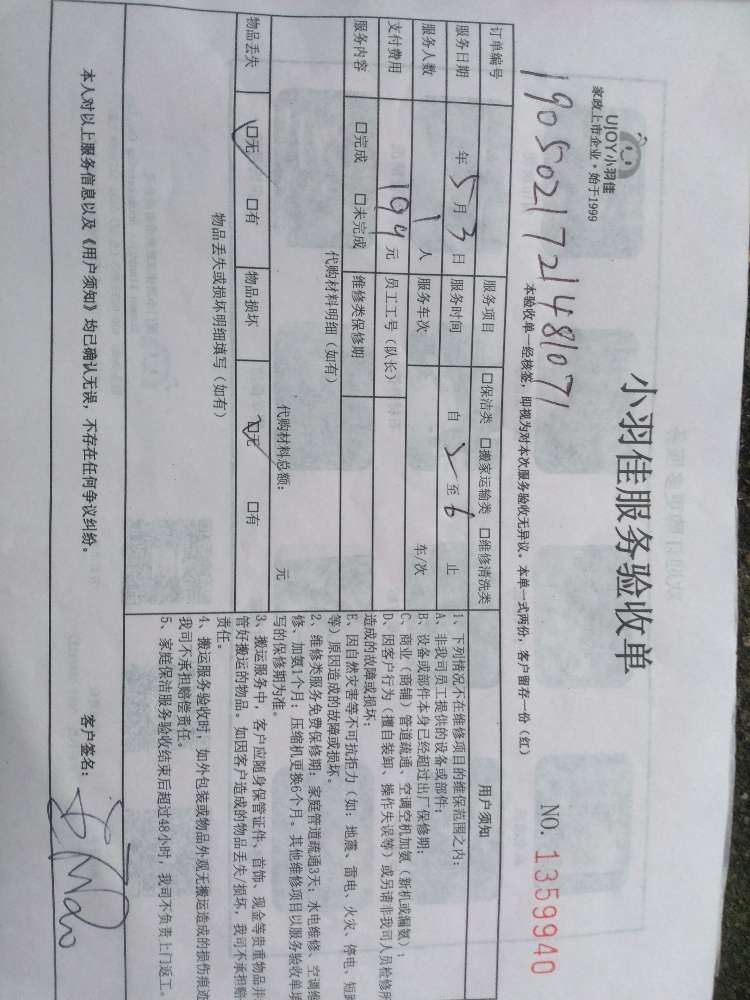 UJOY小羽佳
家政上市企业·始于1999
小羽佳服务验收单
NO. 1359940
本验收单一经核签，即视为对本次服务验收无异议。本单一式两份，客户留存一份（红）
订单编号 1905021721481071
服务项目 口保洁类 口搬家运输类 口维修清洗类
用户须知
服务日期 年5月3日 服务时间 自2至6止
服务人数 1人 服务车次 车/次
支付费用 194元 员工工号（队长）
服务内容 口完成 口未完成 维修类保修期
代购材料明细（如有）
代购材料总额： 元
物品丢失 口无 口有 物品损坏 口无 口有
物品丢失或损坏明细填写（如有）
1、下列情况不在维修项目的维保范围之内：
A、非我司员工提供的设备或部件；
B、设备或部件本身已经超过出厂保修期；
C、商业（商铺）管道疏通、空调空机加氨（新机或漏氨）；
D、因客户行为（擅自装卸、操作失误等）或另请非我司人员检修所
造成的故障或损坏；
E、因自然灾害等不可抗拒力（如：地震、雷电、火灾、停电、短路
等）原因造成的故障或损坏。
2、维修类服务免费保修期：家庭管道疏通3天；水电维修、空调维
修、加氨1个月；压缩机更换6个月。其他维修项目以服务验收单填
写的保修期为准。
3、搬运服务中，客户应随身保管证件、首饰、现金等贵重物品并
管好搬运的物品。如因客户造成的物品丢失/损坏，我司不承担赔
责任。
4、搬运服务验收时，如外包装或物品外观无搬运造成的损伤痕迹
我司不承担赔偿责任。
5、家庭保洁服务验收结束后超过48小时，我司不负责上门返工。
本人对以上服务信息以及《用户须知》均已确认无误，不存在任何争议纠纷。
客户签名：